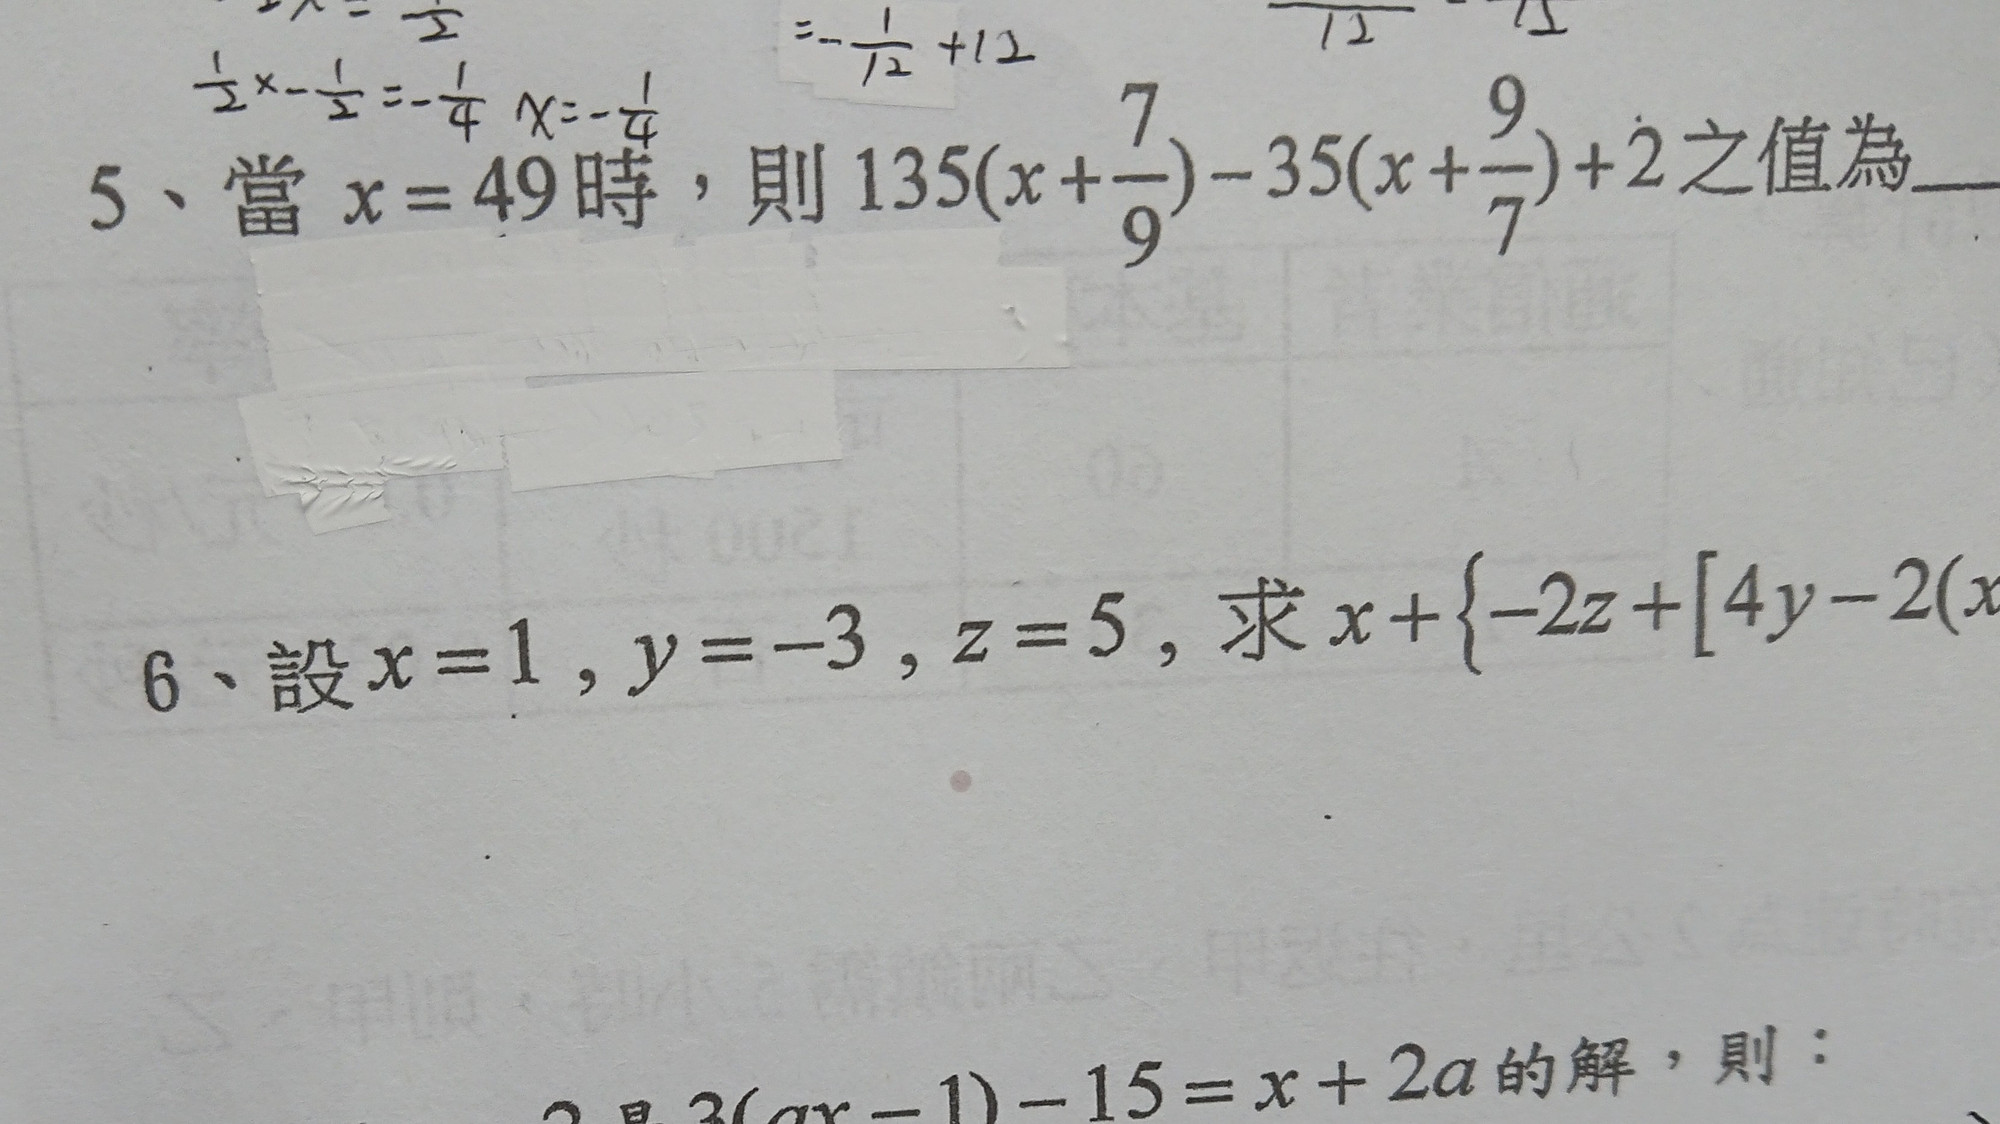 =-1/12 +12
1/2x-1/2=-1/4 x=-1/4
5、當 x=49時，則 135(x+7/9)-35(x+9/7)+2之值為
6、設x=1, y=-3, z=5, 求x+{-2z+[4y-2(x
3(ax-1)-15=x+2a的解，則：